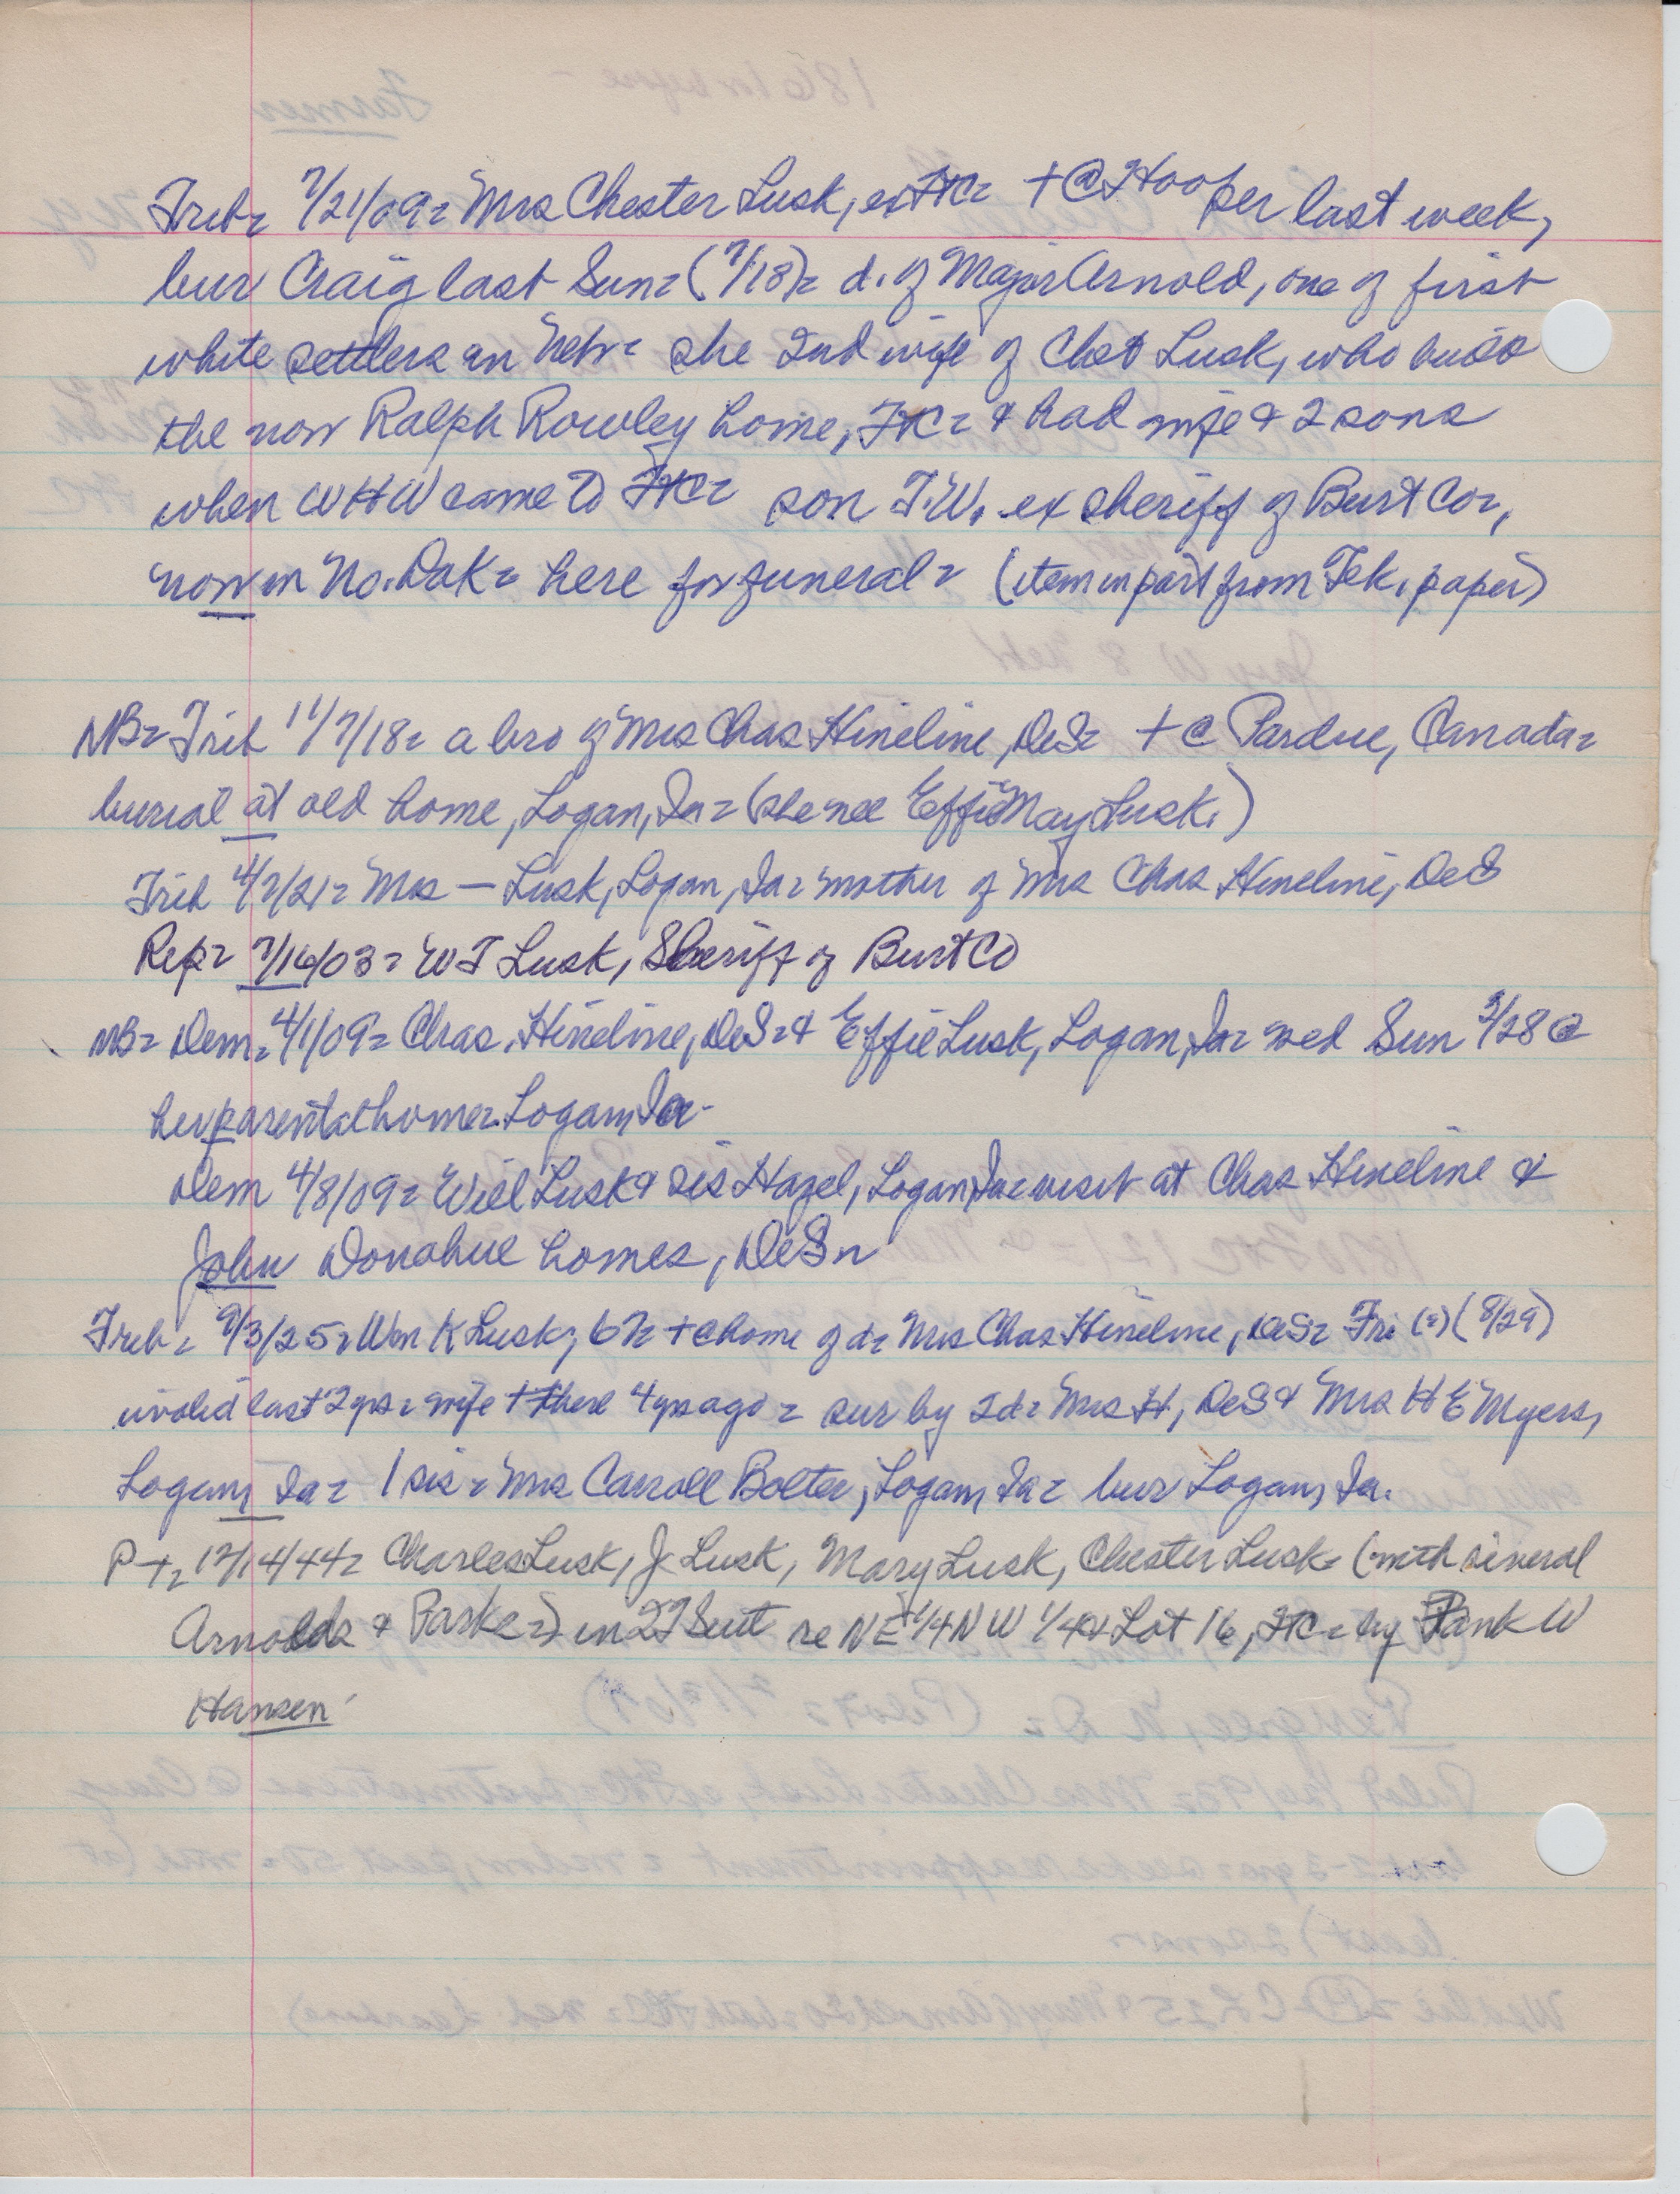 Trib = 7/21/09 = Mrs Chester Lusk, ex FtC = + @ Hooper last week,
bur Craig last Sun = (7/18) = d. of Major Arnold, one of first
white settlers in Nebr = she 2nd wife of Chet Lusk, who built
the now Ralph Rowley home, FtC = & had wife & 2 sons
when WHW came to FtC = son T.W. ex sheriff of Burt Co =,
now in No. Dak = here for funeral = (item in part from Tek. paper)
NB = Trib 11/7/18 = a bro of Mrs Chas Hineline, DeS = + @ Pardue, Canada =
burial at old home, Logan, Ia = (she nee Effie May Lusk.)
Trib 4/7/21 = Mrs — Lusk, Logan, Ia = mother of Mrs Chas Hineline, DeS
Rep = 7/16/03 = W T Lusk, Sheriff of Burt Co
NB = Dem = 4/1/09 = Chas. Hineline, DeS = & Effie Lusk, Logan, Ia = wed Sun 3/28 @
her parental home = Logan, Ia -
Dem 4/8/09 = Will Lusk & sis Hazel, Logan, Ia = visit at Chas Hineline &
John Donahue homes, DeS =
Trib = 9/3/25 = Wm K Lusk, 67 = + @ home of d = Mrs Chas Hineline, DeS = Fri (?) (8/29)
invalid last 2 yrs = wife + there 4 yrs ago = sur by 2 d = Mrs H, DeS & Mrs H E Myers,
Logan, Ia = 1 sis = Mrs Carroll Bolter, Logan, Ia = bur Logan, Ia.
P-T = 12/14/44 = Charles Lusk, J Lusk, Mary Lusk, Chester Lusk = (with several
Arnolds & Parks =) in QT Suit re NE 1/4 NW 1/4 & Lot 16, FtC = by Frank W
Hansen